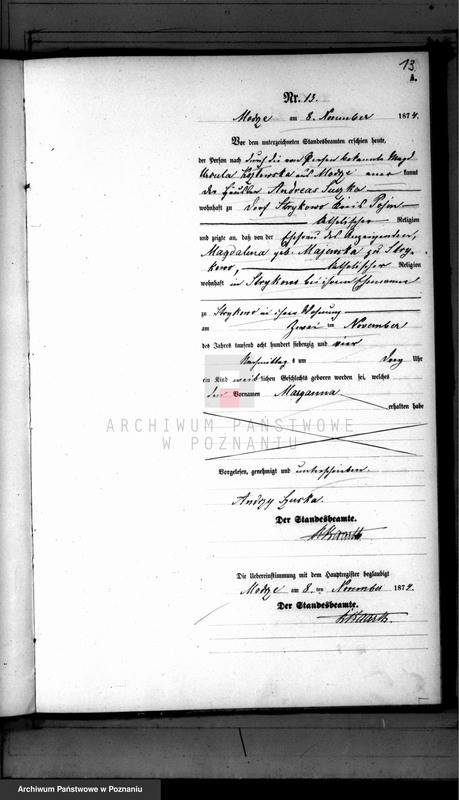 13
A.
Nr. 13.
Modze am 8. November 1874.
Vor dem unterzeichneten Standesbeamten erschien heute,
der Person nach durch die von Person bekannte Magd
Ursula aus Modze aner kannt
der Andreas
wohnhaft zu Dorf Strykowo Kreis Posen
katholischer Religion
und zeigte an, daß von der Ehefrau des Anzeigenden,
Magdalena geb. Majewska zu Stry-
kowo, katholischer Religion
wohnhaft in Strykowo bei ihrem Ehemanne
zu Strykowo in ihrer Wohnung
am Zwei ten November
des Jahres tausend acht hundert siebenzig und vier
Nachmittag s um Drey Uhr
ein Kind weib lichen Geschlechts geboren worden sei, welches
den Vornamen Maryanna
erhalten habe
ARCHIWUM PAŃSTWOWE
W POZNANIU
Vorgelesen, genehmigt und unterschrieben
Der Standesbeamte.
Die Uebereinstimmung mit dem Hauptregister beglaubigt
Modze am 8. ten November 1874.
Der Standesbeamte.
Archiwum Państwowe w Poznaniu